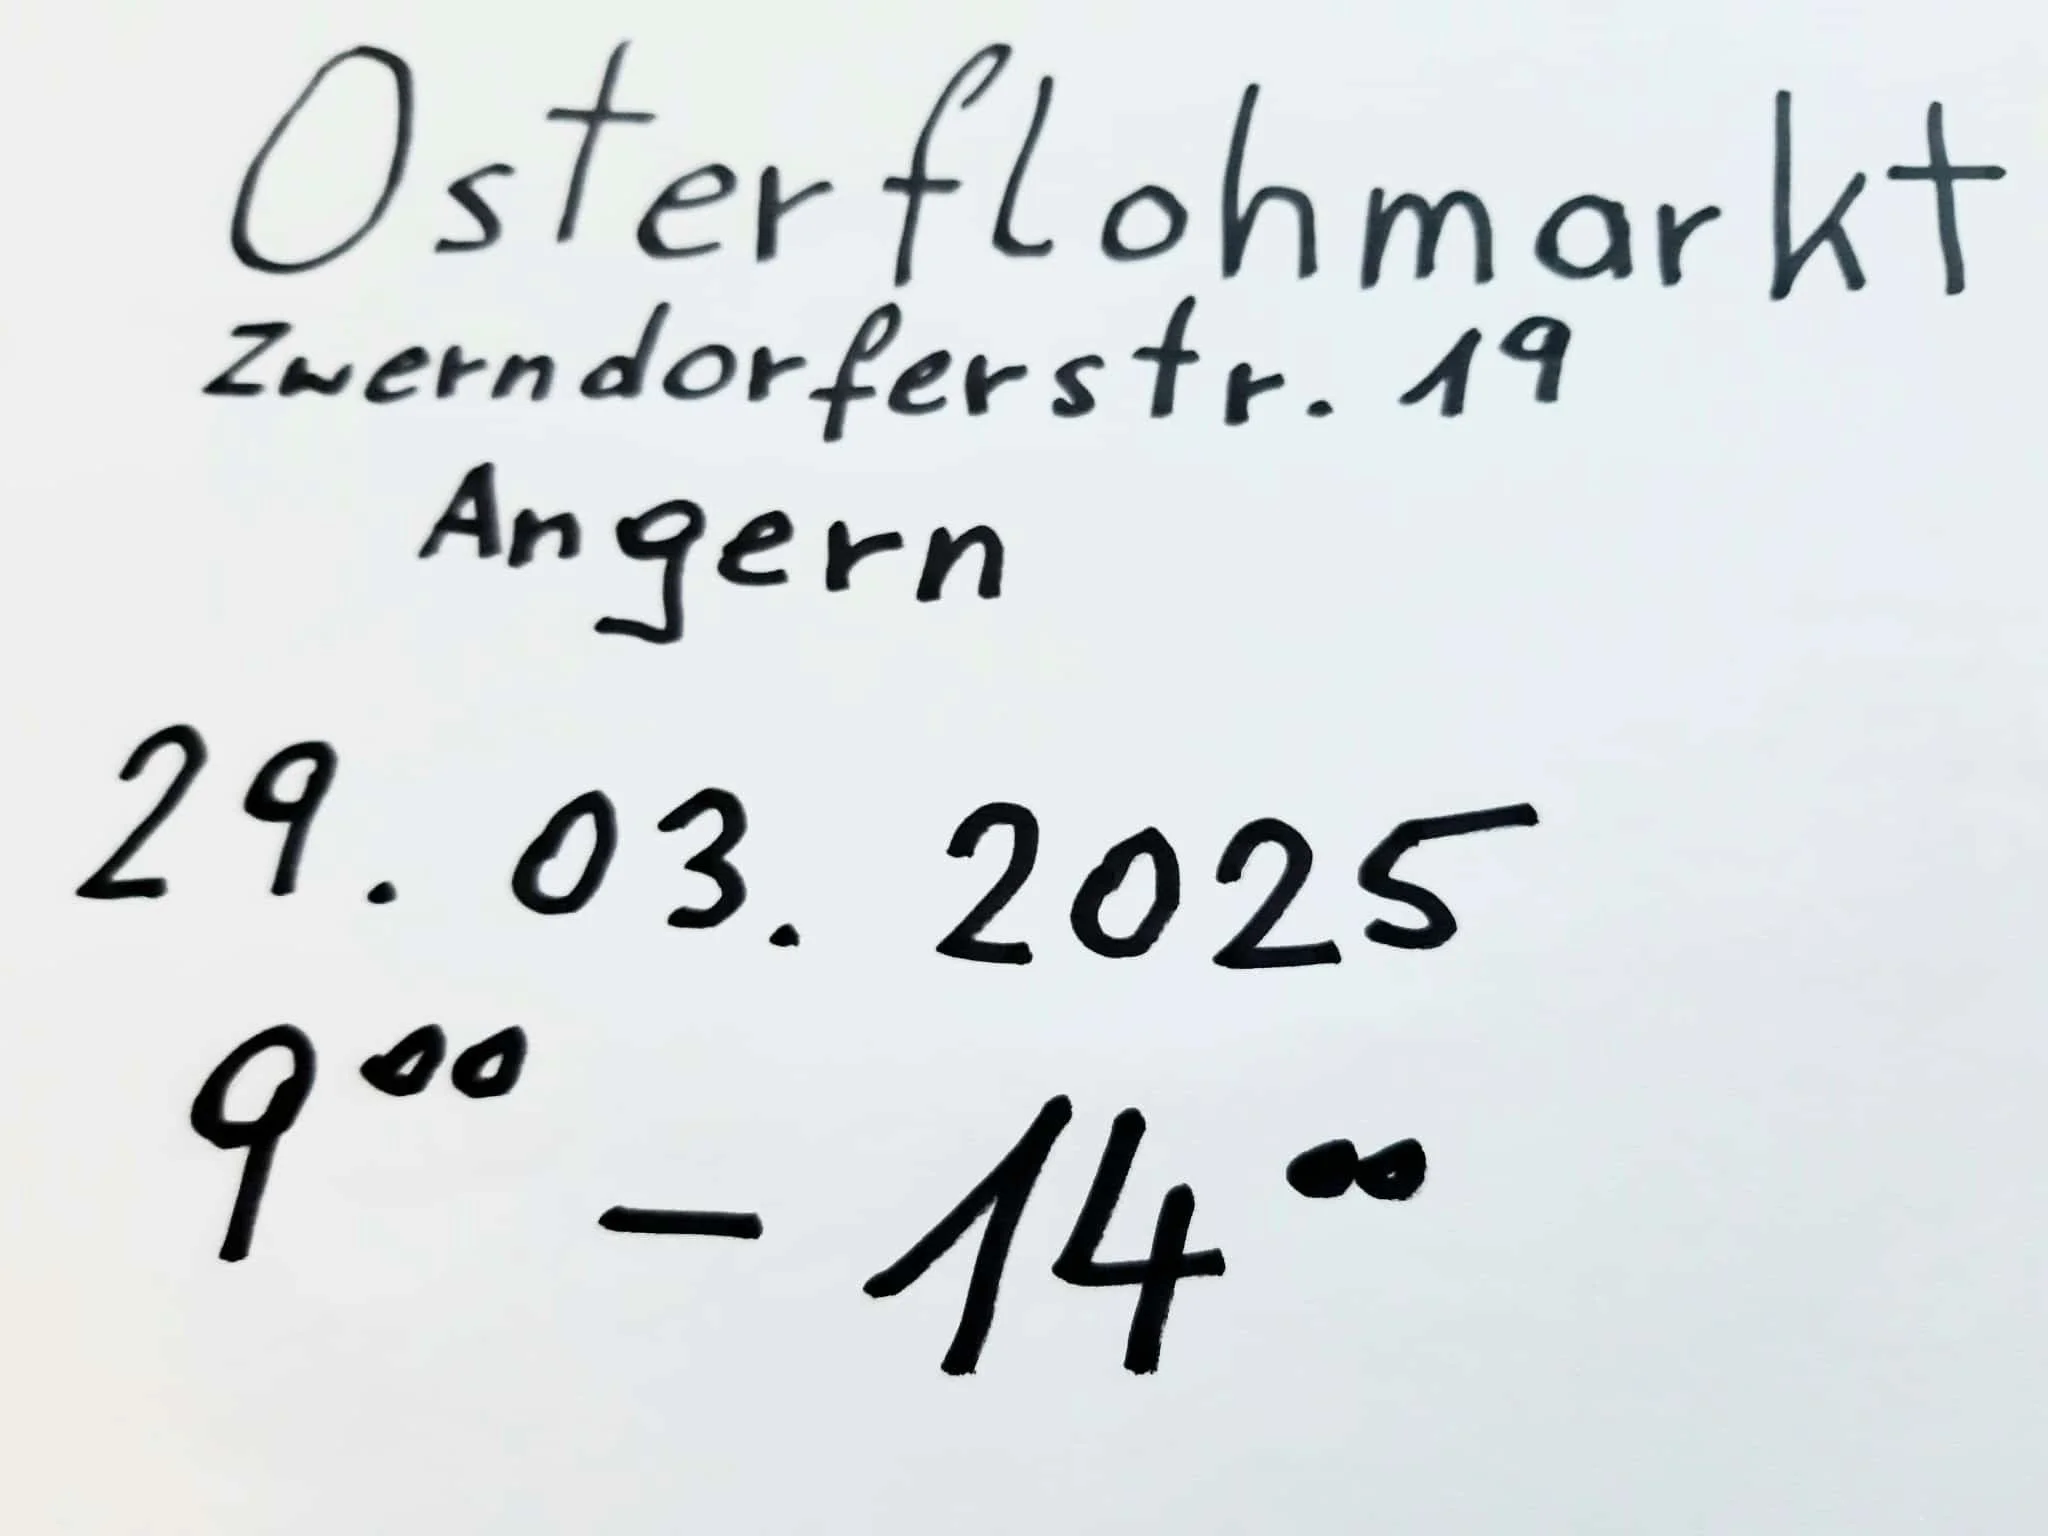 Osterflohmarkt
Zwerndorferstr. 19
Angern
29. 03. 2025
9⁰⁰ - 14⁰⁰